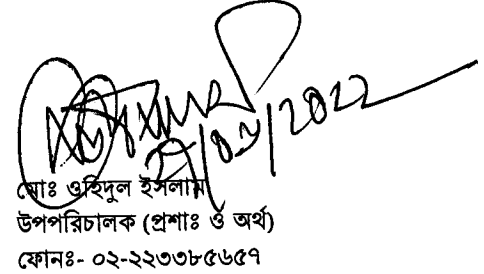 ২৭/০৩/২০২২
মোঃ ওহিদুল ইসলাম
উপপরিচালক (প্রশাঃ ও অর্থ)
ফোনঃ- ০২-২২৩৩৮৫৬৫৭